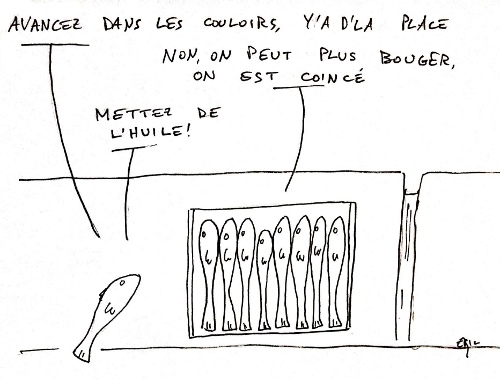 AVANCEZ DANS LES COULOIRS, Y'A D'LA PLACE
NON, ON PEUT PLUS BOUGER,
ON EST COINCÉ
METTEZ DE
L'HUILE!
ERIC